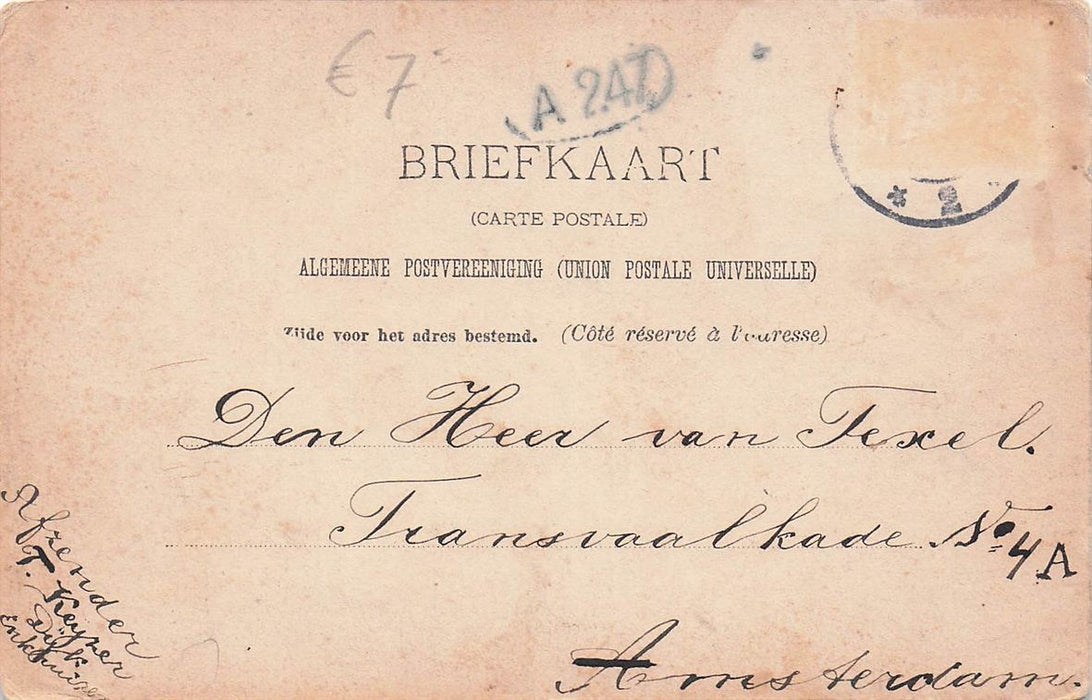 € 7
A 247
BRIEFKAART
(CARTE POSTALE)
ALGEMEENE POSTVEREENIGING (UNION POSTALE UNIVERSELLE)
Zijde voor het adres bestemd. (Côté réservé à l'adresse)
2
Den Heer van Texel.
Transvaalkade No 4 A
Amsterdam.
Afzender
T. Keyzer
Dijk
Enkhuizen